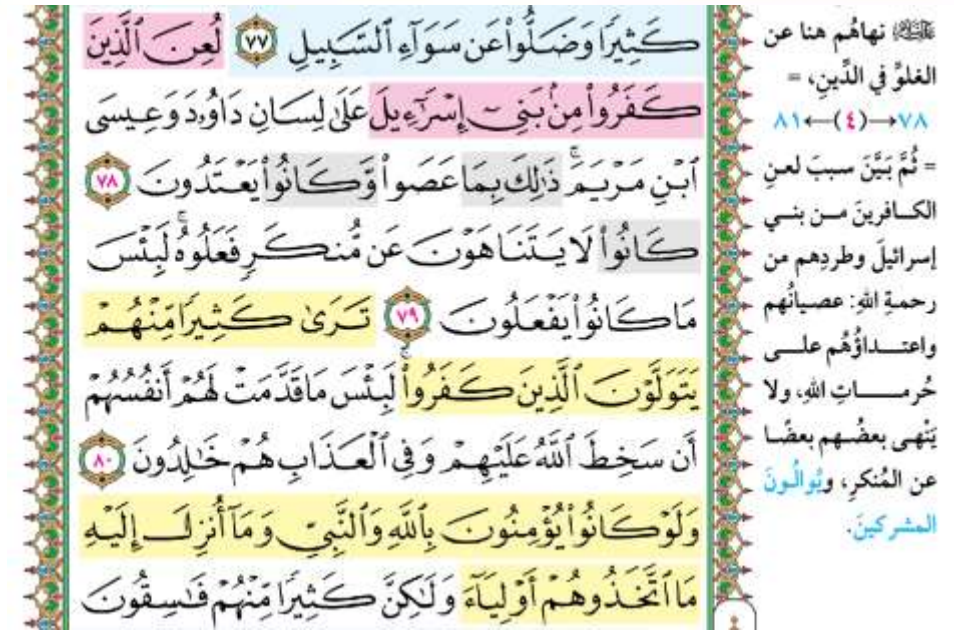 كَثِيرًا وَضَلُّوا۟ عَن سَوَآءِ ٱلسَّبِيلِ ٧٧ لُعِنَ ٱلَّذِينَ
كَفَرُوا۟ مِنۢ بَنِىٓ إِسْرَٰٓءِيلَ عَلَىٰ لِسَانِ دَاوُۥدَ وَعِيسَى
ٱبْنِ مَرْيَمَ ۚ ذَٰلِكَ بِمَا عَصَوا۟ وَّكَانُوا۟ يَعْتَدُونَ ٧٨
كَانُوا۟ لَا يَتَنَاهَوْنَ عَن مُّنكَرٍ فَعَلُوهُ ۚ لَبِئْسَ
مَا كَانُوا۟ يَفْعَلُونَ ٧٩ تَرَىٰ كَثِيرًا مِّنْهُمْ
يَتَوَلَّوْنَ ٱلَّذِينَ كَفَرُوا۟ ۚ لَبِئْسَ مَا قَدَّمَتْ لَهُمْ أَنفُسُهُمْ
أَن سَخِطَ ٱللَّهُ عَلَيْهِمْ وَفِى ٱلْعَذَابِ هُمْ خَٰلِدُونَ ٨٠
وَلَوْ كَانُوا۟ يُؤْمِنُونَ بِٱللَّهِ وَٱلنَّبِىِّ وَمَآ أُنزِلَ إِلَيْهِ
مَا ٱتَّخَذُوهُمْ أَوْلِيَآءَ وَلَٰكِنَّ كَثِيرًا مِّنْهُمْ فَٰسِقُونَ
ﷺ نهاهُم هنا عن
الغلوِّ في الدِّينِ، =
٧٨→(٤)←٨١
= ثُمَّ بَيَّنَ سببَ لعنِ
الكافرينَ من بني
إسرائيلَ وطردِهم من
رحمةِ اللهِ: عصيانُهم
واعتداؤُهُم على
حُرماتِ اللهِ، ولا
يَنْهى بعضُهم بعضًا
عن المُنكرِ، ويُوالُونَ
المشركينَ.